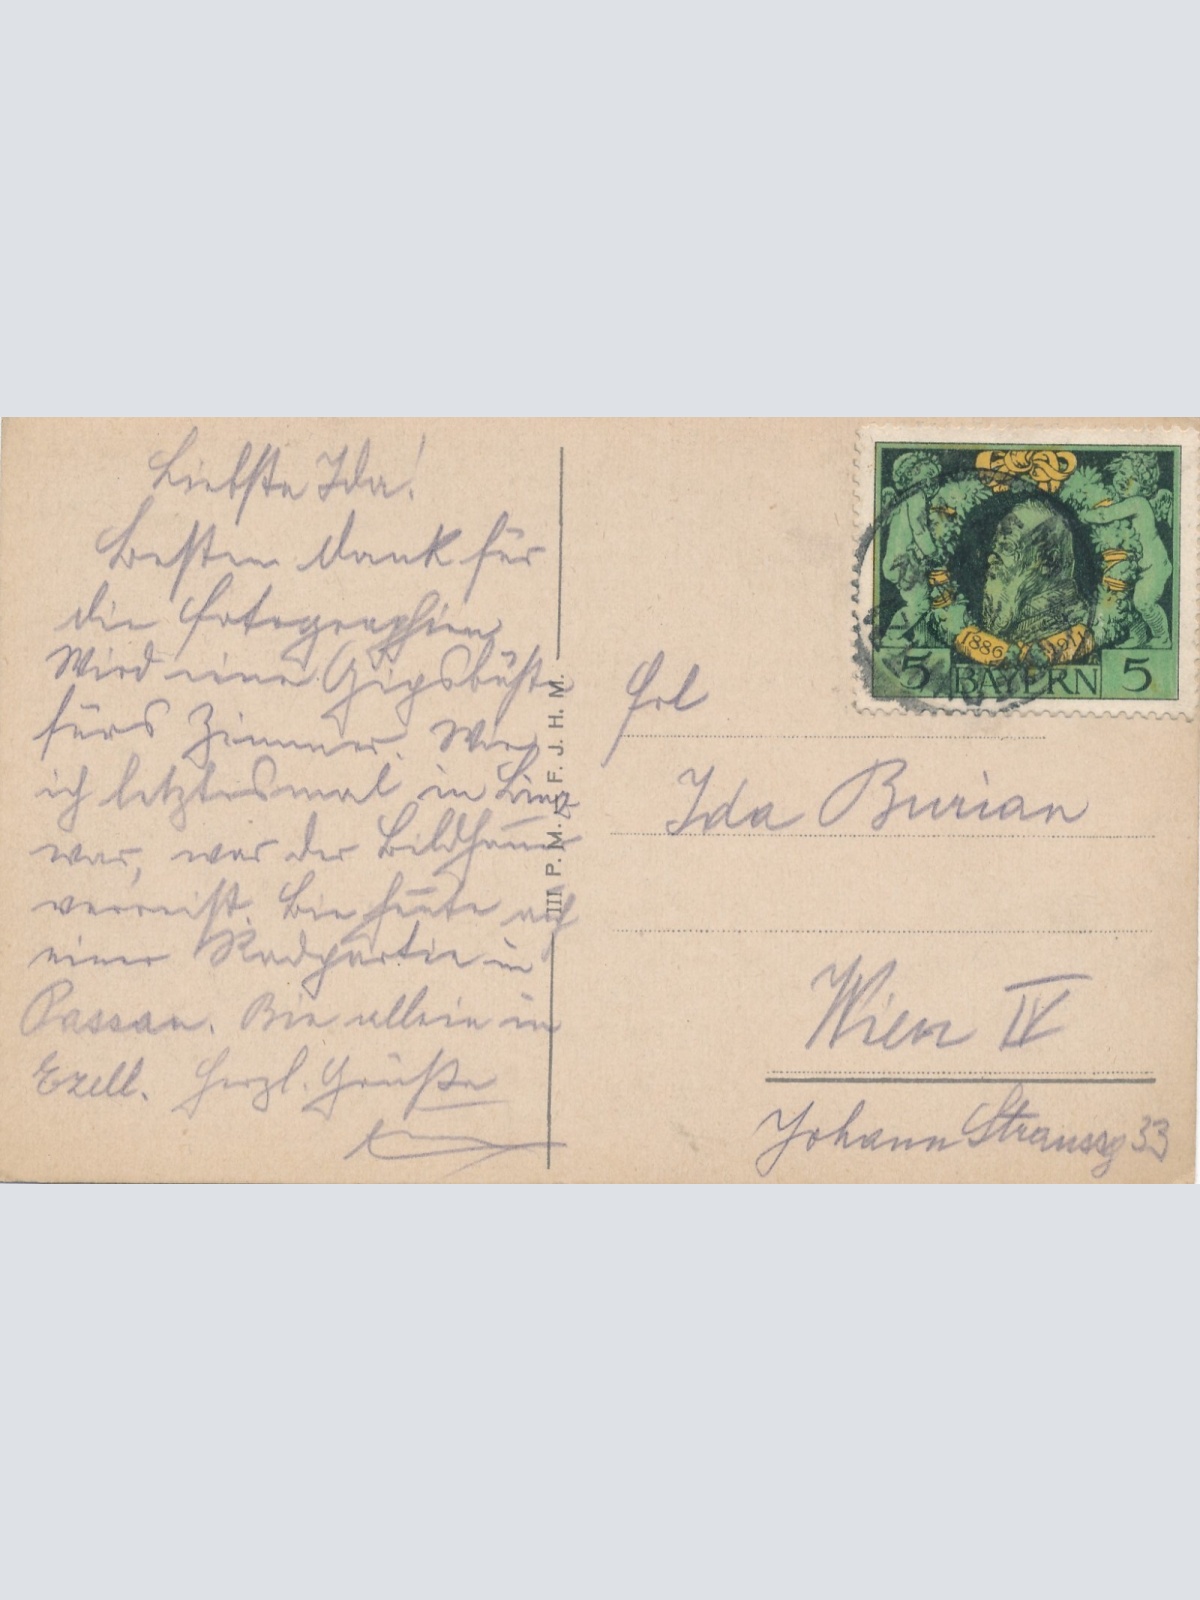 Liebste Ida!
Besten Dank für
die Fotographien
Wird eine Gipsbüste
fürs Zimmer. Wie
ich letztesmal in Linz
war, war der Bildhauer
verreist. Bin heute auf
einer Radpartie in
Passau. Bin allein in
Ezell. Herzl. Grüße
III P. M. F. J. H. M.
1886 1911
5 BAYERN 5
Frl
Ida Burian
Wien IV
Johann Straussg 33